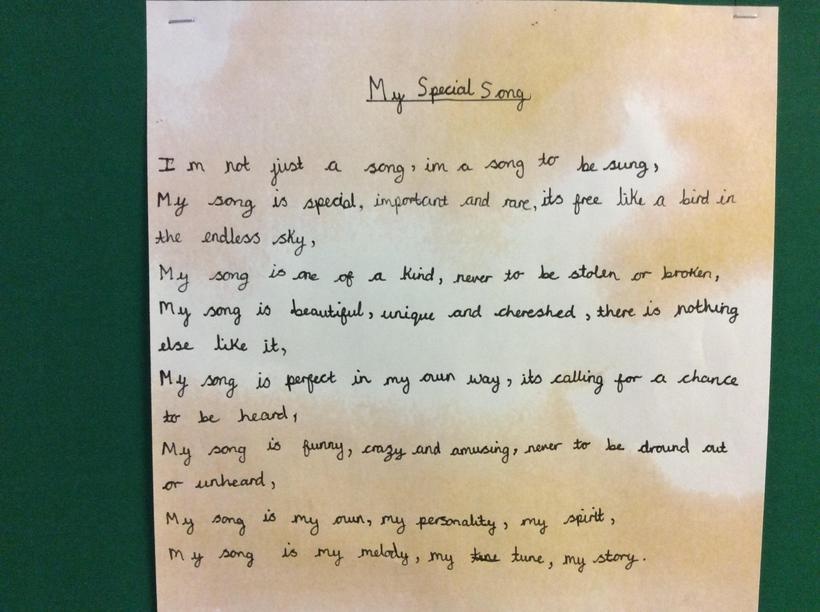 My Special Song
I m not just a song, im a song to be sung,
My song is special, important and rare, its free like a bird in
the endless sky,
My song is one of a kind, never to be stolen or broken,
My song is beautiful, unique and chereshed, there is nothing
else like it,
My song is perfect in my own way, its calling for a chance
to be heard,
My song is funny, crazy and amusing, never to be dround out
or unheard,
My song is my own, my personality, my spirit,
My song is my melody, my tune, my story.